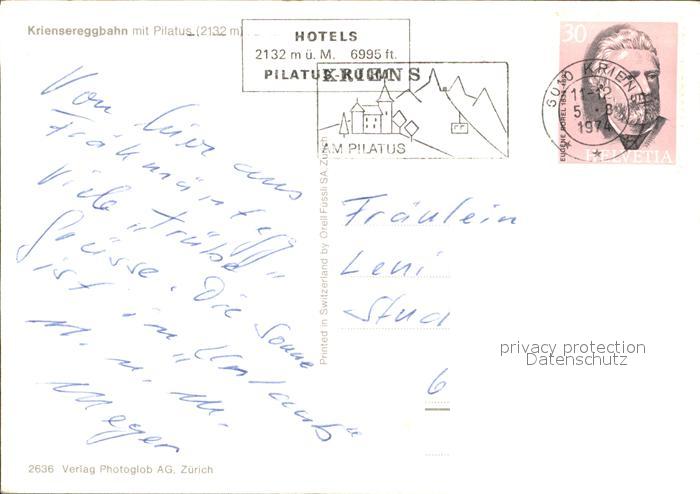 Kriensereggbahn mit Pilatus (2132 m)
HOTELS
2132 m ü. M. 6995 ft.
PILATUS-KULM
KRIENS
AM PILATUS
6010 KRIENS
11-12
5. 8.
1974
30
EUGENE BOREL
HELVETIA
Von hier aus
Fräkmüntegg
viele "trübe"
Grüsse. Die Sonne
ist in "Urlaub"
M. u. M.
Meyer
Printed in Switzerland by Orell Füssli SA, Zürich
Fräulein
Leni
Stud
6
privacy protection
Datenschutz
2636 Verlag Photoglob AG, Zürich